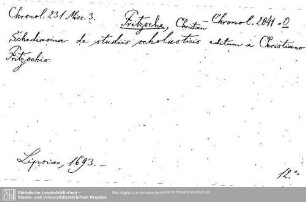 Chronol. 231 Misc 3.
Fritzsche, Christian - Chronol. 2841 o
Schediasma de studiis scholasticis editum a Christiano
Fritzschio
Lipsiae, 1693. -
12°-
Sächsische Landesbibliothek -
Staats- und Universitätsbibliothek Dresden